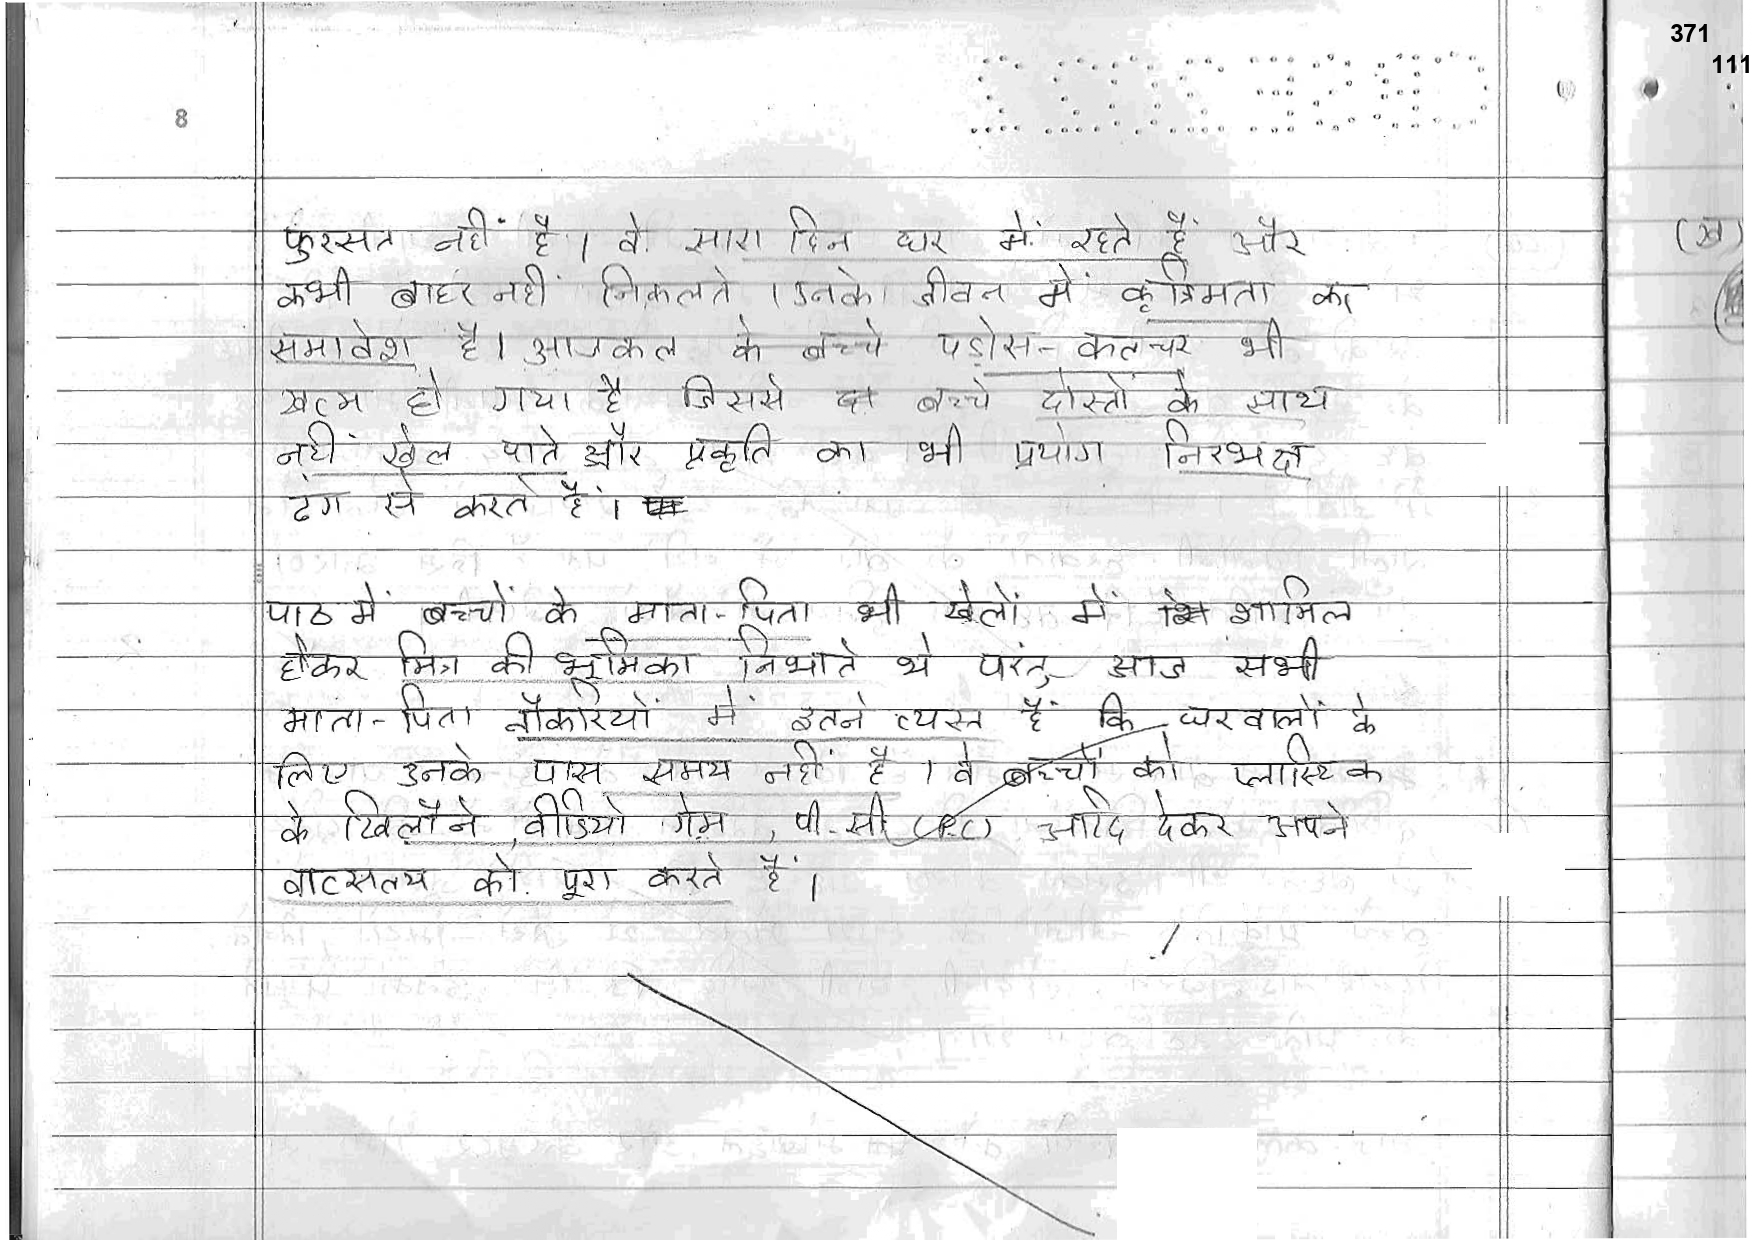 371
111
8
फुरसत नहीं है। वे सारा दिन घर में रहते हैं और
कभी बाहर नहीं निकलते। उनके जीवन में कृत्रिमता का
समावेश है। आजकल के बच्चे पड़ोस-कलचर भी
खत्म हो गया है जिससे बच्चे दोस्तों के साथ
नहीं खेल पाते और प्रकृति का भी प्रयोग
ढंग से करते हैं।
पाठ में बच्चों के माता-पिता भी खेलों में शामिल
होकर मित्र की भूमिका निभाते थे परंतु आज सभी
माता-पिता नौकरियों में इतने व्यस्त हैं कि घरवालों के
लिए उनके पास समय नहीं है। वे बच्चों को प्लास्टिक
के खिलौने, वीडियो गेम, पी.सी (P.C) आदि देकर अपने
वात्सलय को पूरा करते हैं।
(ख)